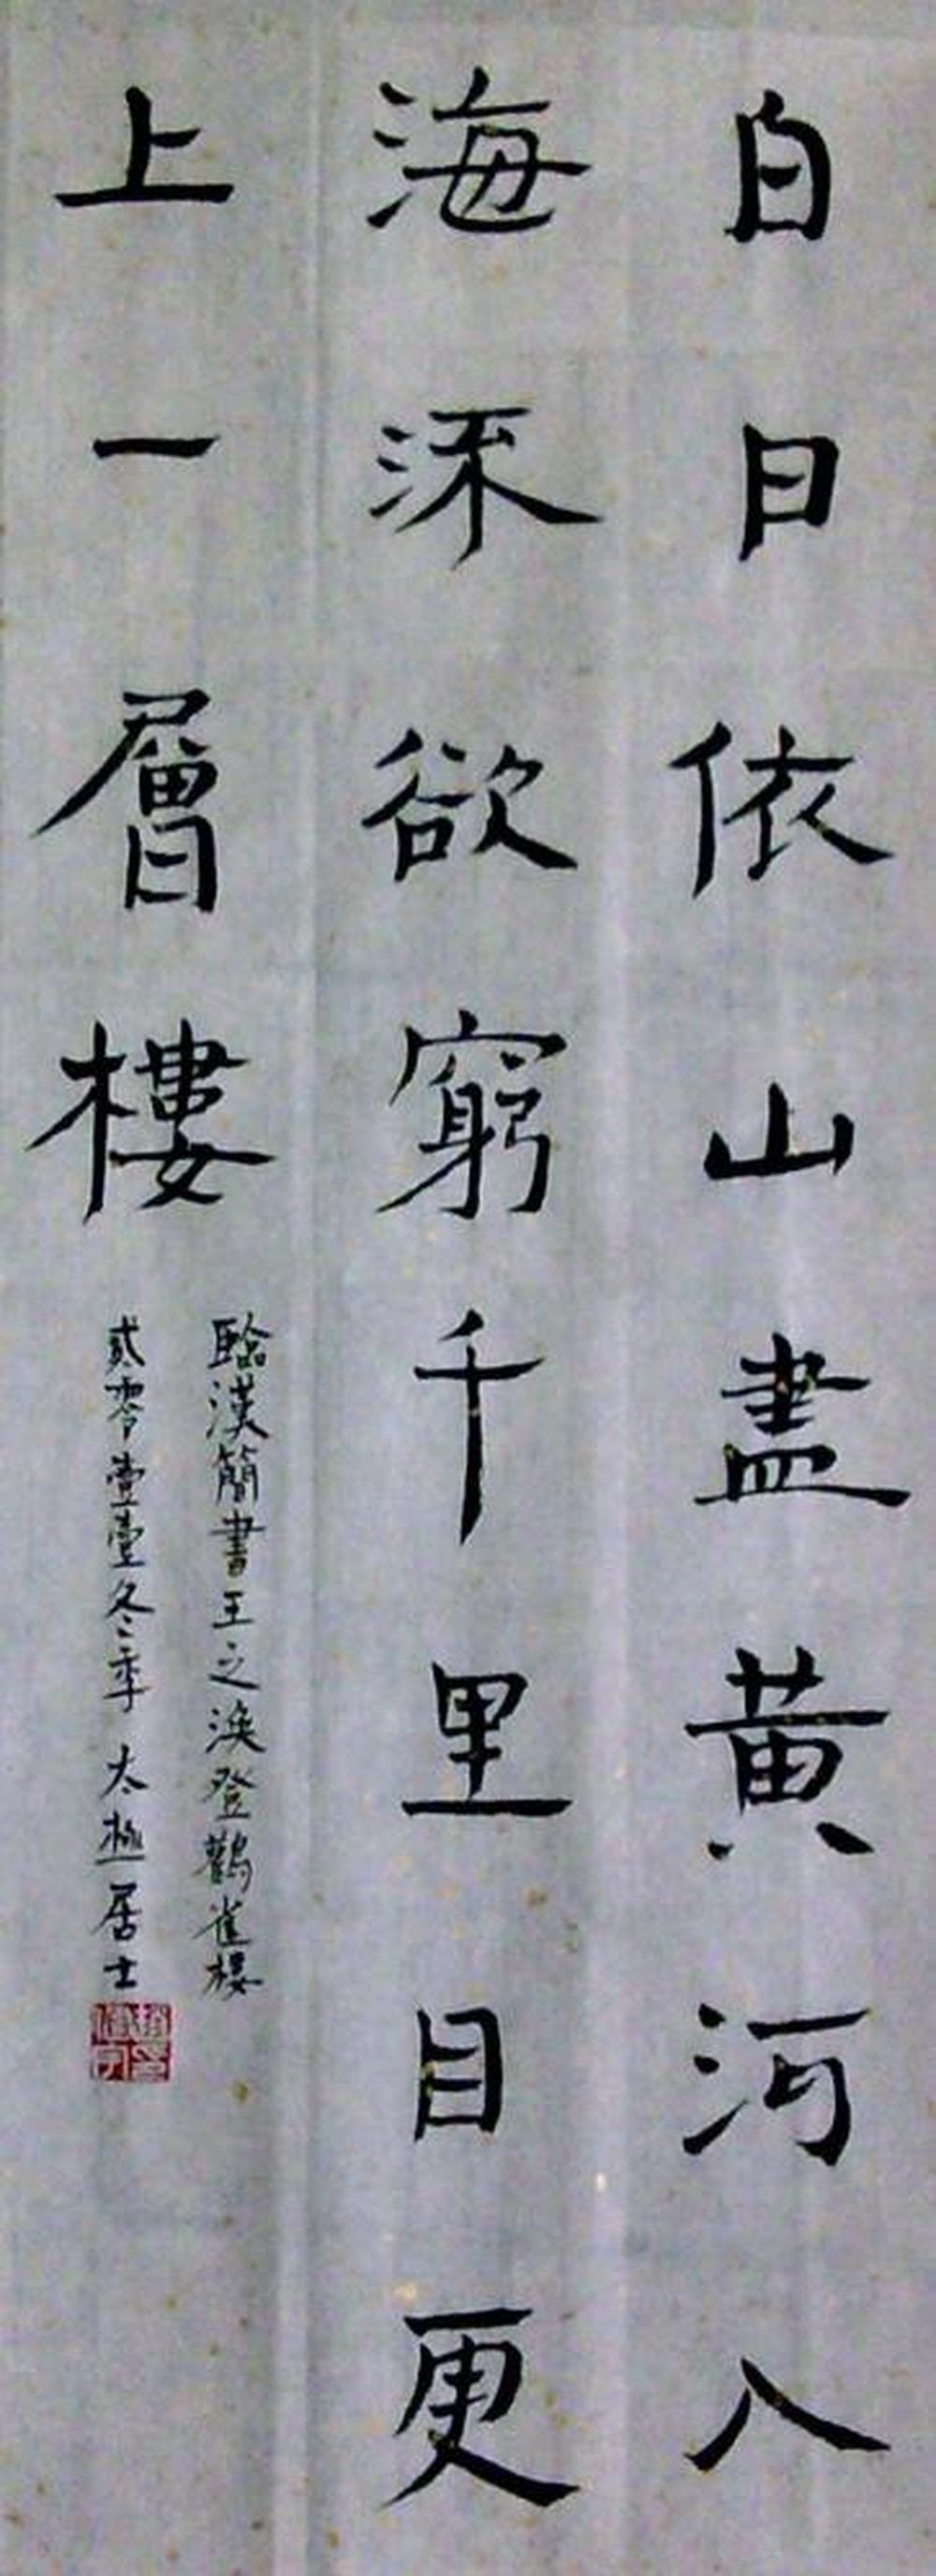 白日依山盡黃河入
海流欲窮千里目更
上一層樓
臨漢簡書王之渙登鸛雀樓
貳零壹壹冬季 太極居士